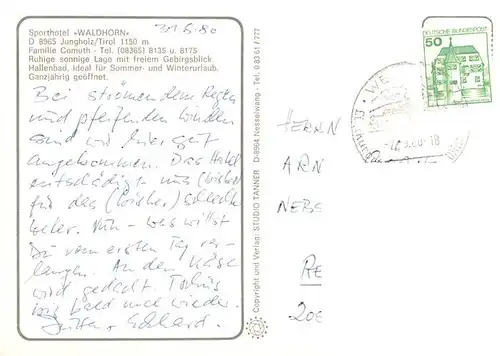 Sporthotel »WALDHORN«
D 8965 Jungholz/Tirol 1150 m
Familie Comuth - Tel. (08365) 8135 u. 8175
Ruhige sonnige Lage mit freiem Gebirgsblick
Hallenbad, ideal für Sommer- und Winterurlaub.
Ganzjährig geöffnet.
31.5.80
Bei strömendem Regen
und pfeifenden Winden
sind wir hier gut
angekommen. Das Hotel
entschädigt uns (bisher)
für das (bisher) schlechte
Wetter. Nun - was willst
Du vom ersten Tag ver-
langen. An den Käse
wird gedacht. Tschüs
bis bald mal wieder.
Jutta + Eckhard.
Copyright und Verlag: STUDIO TANNER D-8964 Nesselwang - Tel. 0 83 61 / 777
DEUTSCHE BUNDESPOST
50
HERRN
ARN
NEBS
RE